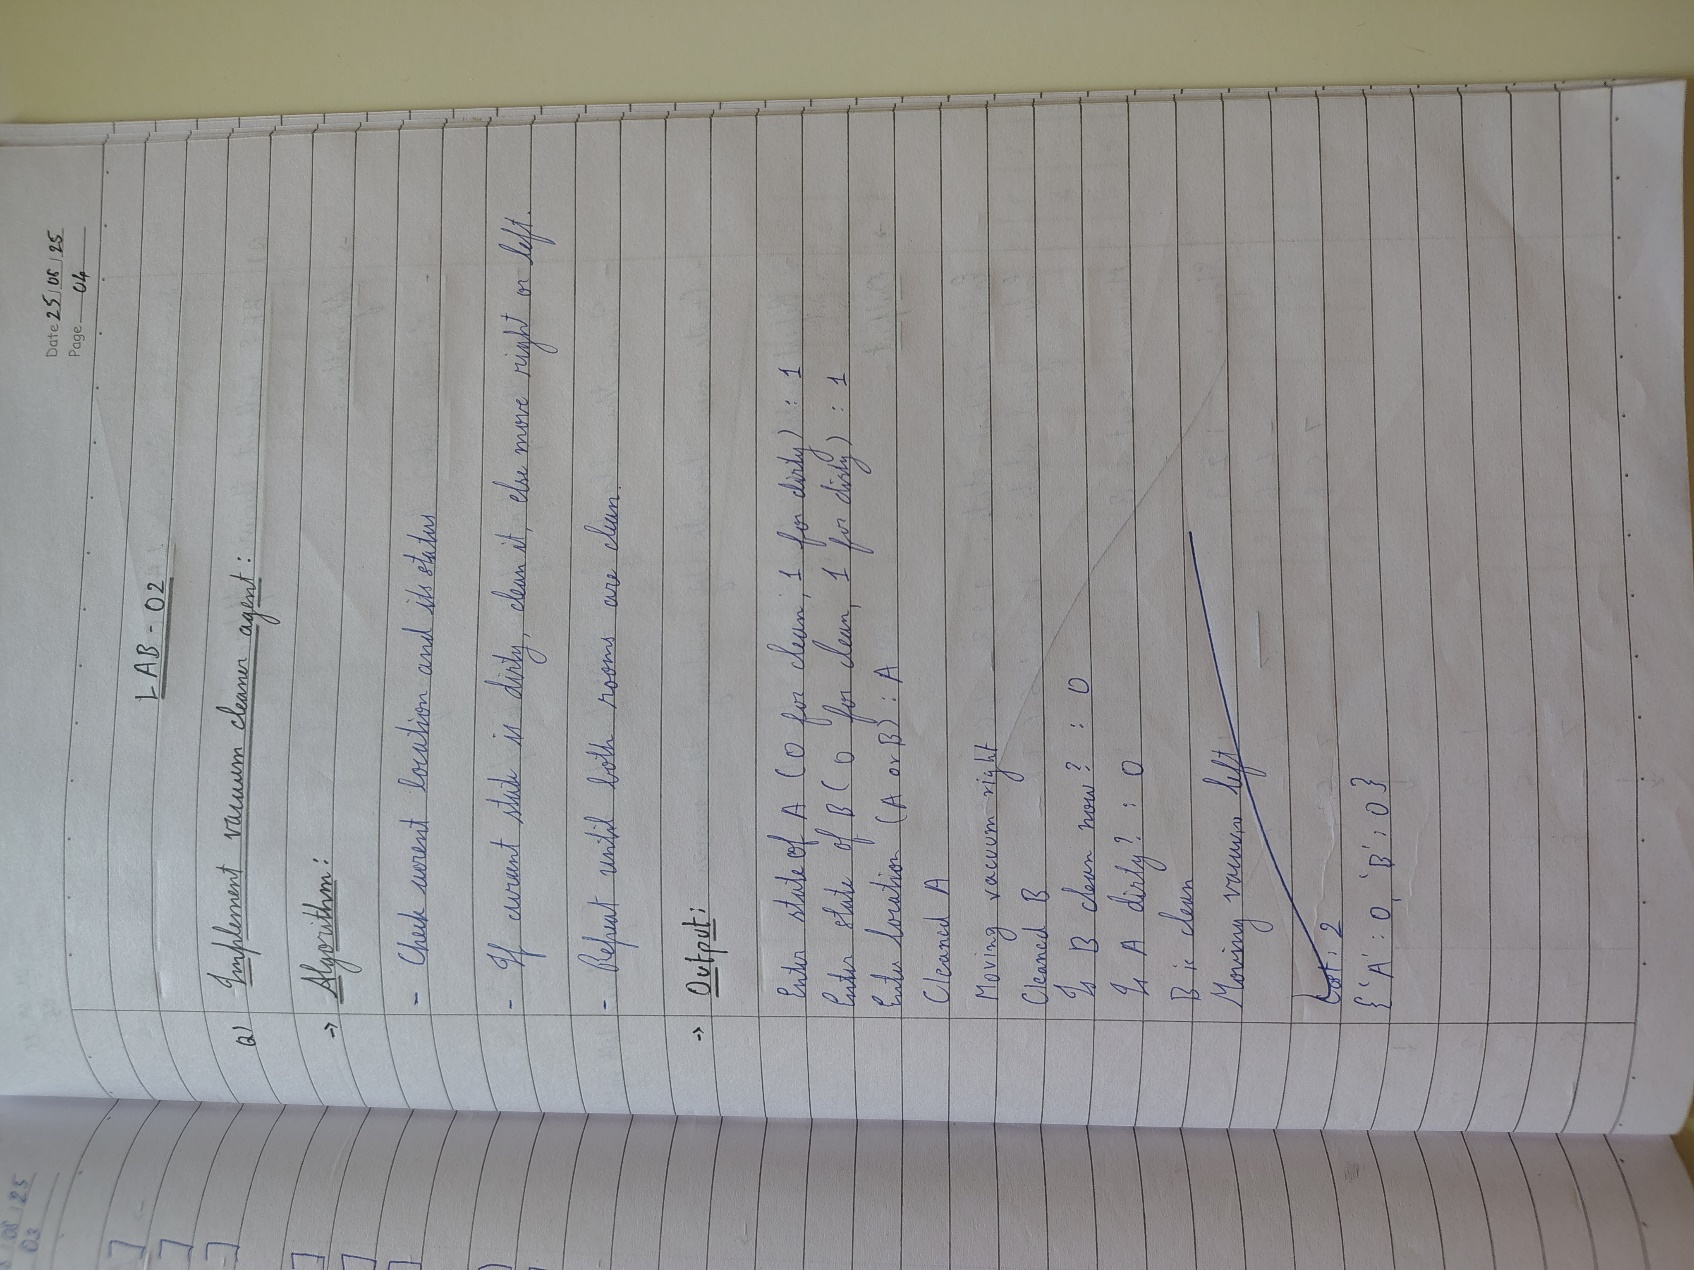 Date 25/08/25
Page 04
LAB-02
Q) Implement vacuum cleaner agent:
→ Algorithm:
- Check current location and its status
- If current state is dirty, clean it, else move right or left.
- Repeat until both rooms are clean.
→ Output:
Enter state of A (0 for clean, 1 for dirty) : 1
Enter state of B (0 for clean, 1 for dirty) : 1
Enter location (A or B) : A
Cleaned A
Moving vacuum right
Cleaned B
Is B clean now? : 0
Is A dirty? : 0
B is clean
Moving vacuum left
Cost: 2
{'A': 0, 'B': 0}
08/25
03
]
]
]
]
]
]